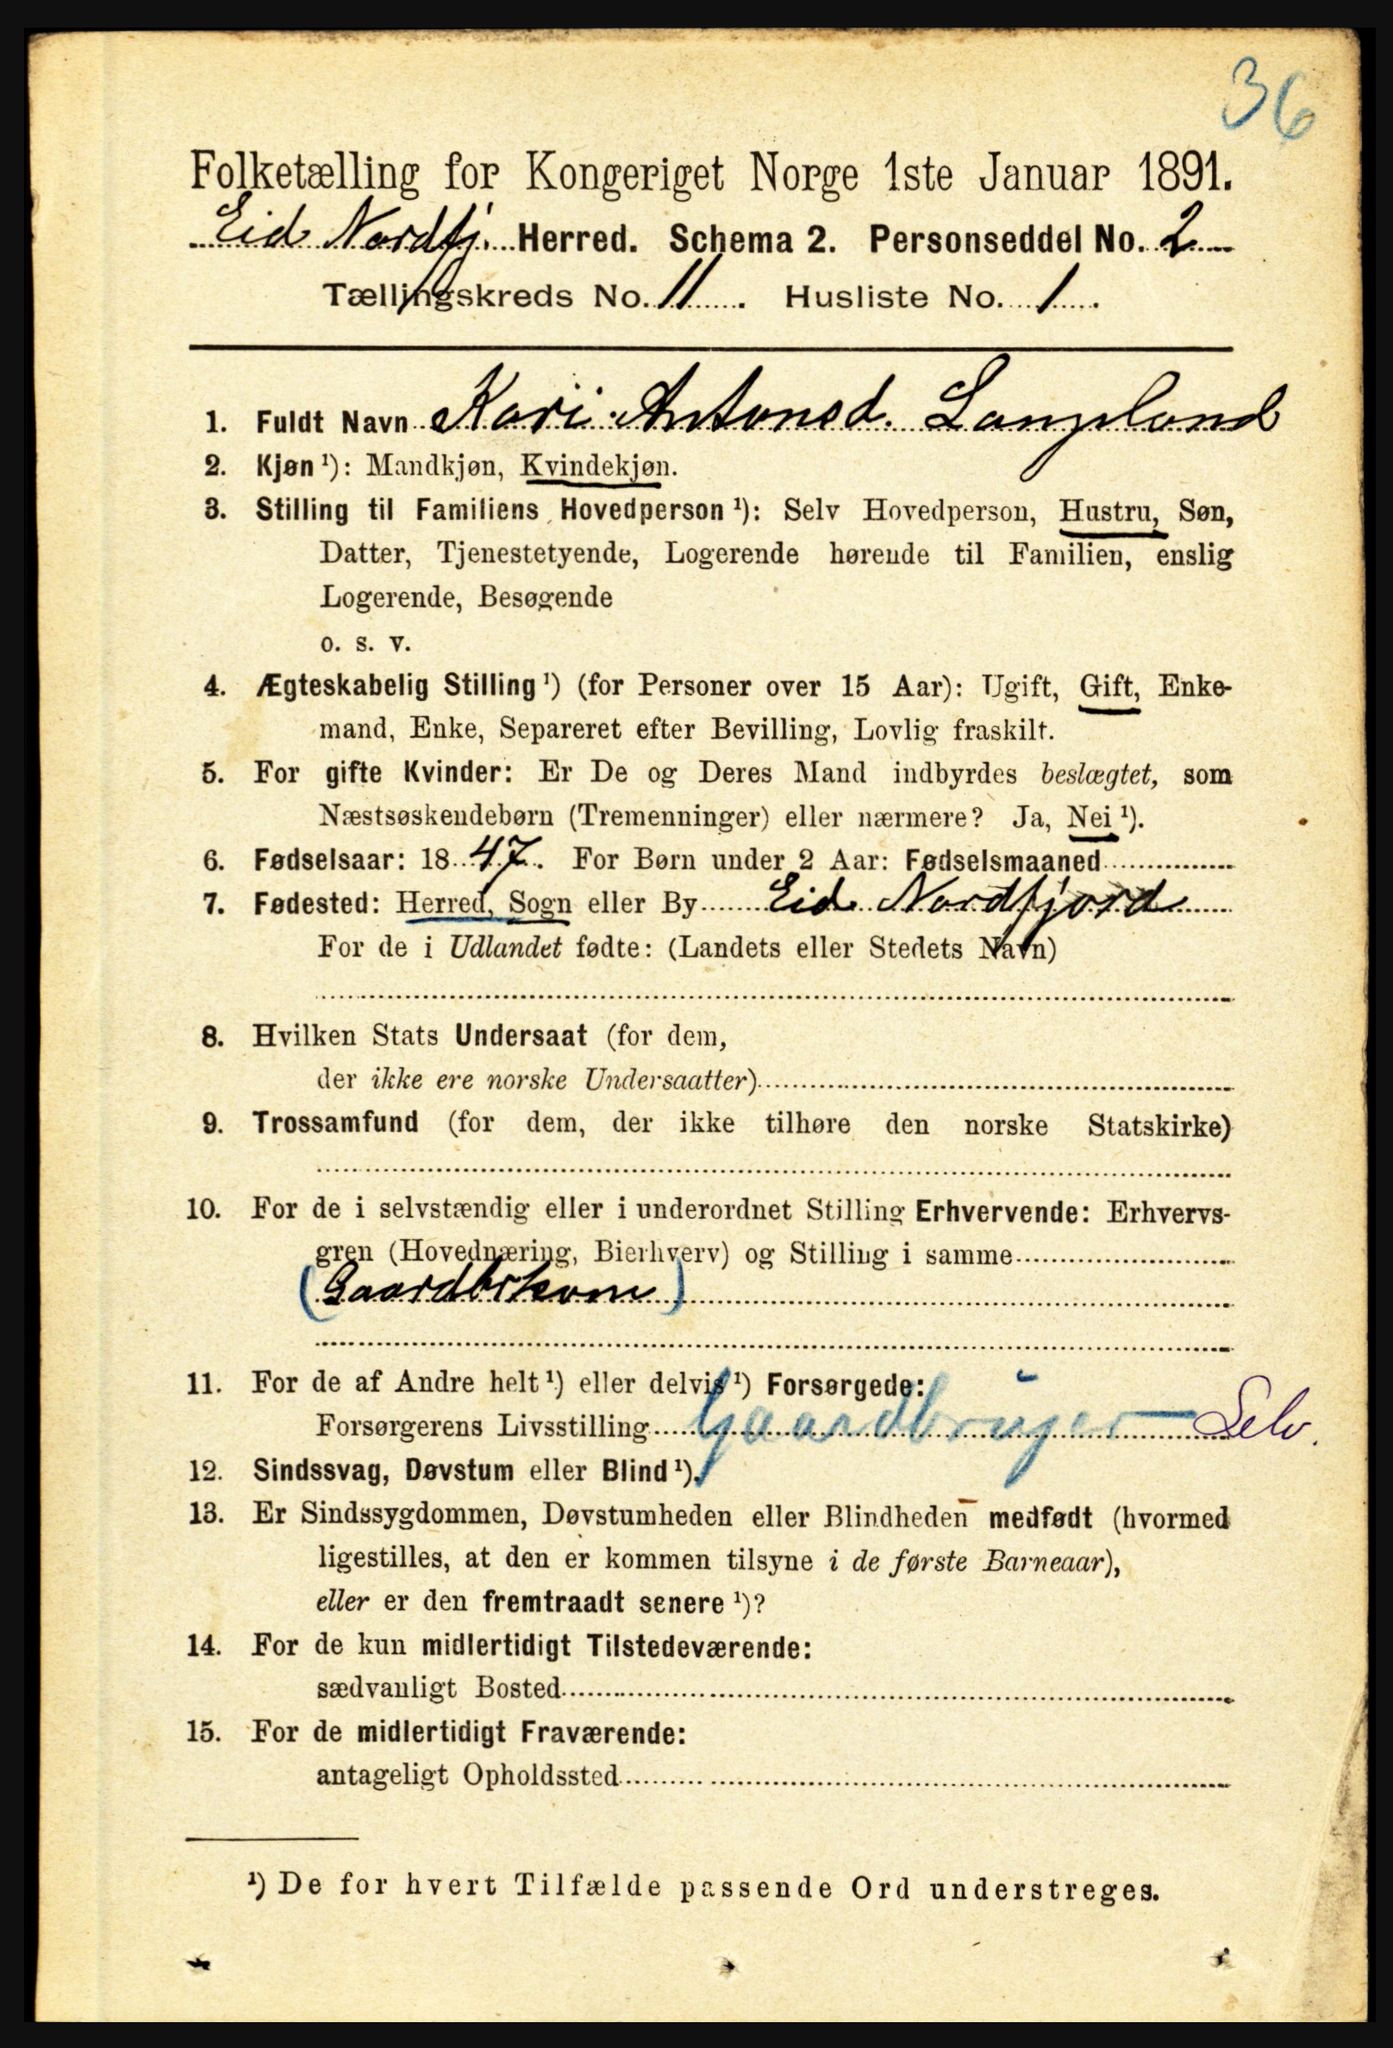 36
Folketælling for Kongeriget Norge 1ste Januar 1891.
Eid Nordfj. Herred. Schema 2. Personseddel No. 2
Tællingskreds No. 11. Husliste No. 1.
1. Fuldt Navn Kari Antonsd. Langeland
2. Kjøn ¹): Mandkjøn, Kvindekjøn.
3. Stilling til Familiens Hovedperson ¹): Selv Hovedperson, Hustru, Søn,
Datter, Tjenestetyende, Logerende hørende til Familien, enslig
Logerende, Besøgende
o. s. v.
4. Ægteskabelig Stilling ¹) (for Personer over 15 Aar): Ugift, Gift, Enke-
mand, Enke, Separeret efter Bevilling, Lovlig fraskilt.
5. For gifte Kvinder: Er De og Deres Mand indbyrdes beslægtet, som
Næstsøskendebørn (Tremenninger) eller nærmere? Ja, Nei ¹).
6. Fødselsaar: 1847. For Børn under 2 Aar: Fødselsmaaned
7. Fødested: Herred, Sogn eller By Eid Nordfjord
For de i Udlandet fødte: (Landets eller Stedets Navn)
8. Hvilken Stats Undersaat (for dem,
der ikke ere norske Undersaatter)
9. Trossamfund (for dem, der ikke tilhøre den norske Statskirke)
10. For de i selvstændig eller i underordnet Stilling Erhvervende: Erhvervs-
gren (Hovednæring, Bierhverv) og Stilling i samme
(Gaardbrkone)
11. For de af Andre helt ¹) eller delvis ¹) Forsørgede:
Forsørgerens Livsstilling Gaardbruger — Selv.
12. Sindssvag, Døvstum eller Blind ¹).
13. Er Sindssygdommen, Døvstumheden eller Blindheden medfødt (hvormed
ligestilles, at den er kommen tilsyne i de første Barneaar),
eller er den fremtraadt senere ¹)?
14. For de kun midlertidigt Tilstedeværende:
sædvanligt Bosted
15. For de midlertidigt Fraværende:
antageligt Opholdssted
¹) De for hvert Tilfælde passende Ord understreges.